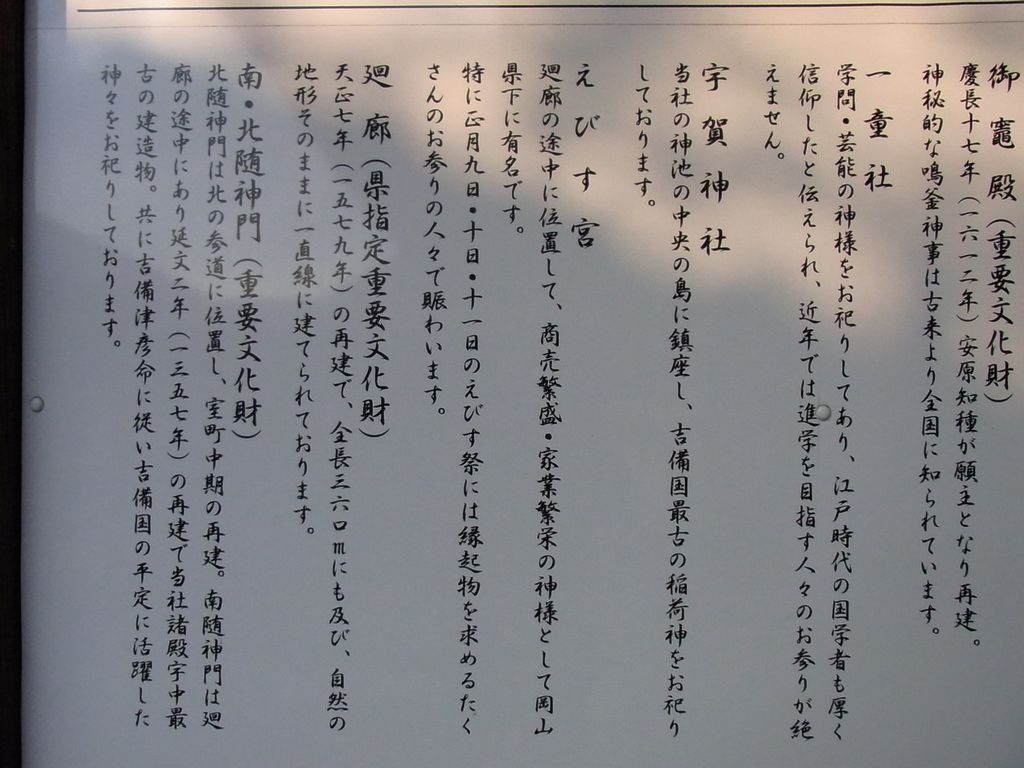 御竈殿（重要文化財）
慶長十七年（一六一二年）安原知種が願主となり再建。
神秘的な鳴釜神事は古来より全国に知られています。
一童社
学問・芸能の神様をお祀りしてあり、江戸時代の国学者も厚く
信仰したと伝えられ、近年では進学を目指す人々のお参りが絶
えません。
宇賀神社
当社の神池の中央の島に鎮座し、吉備国最古の稲荷神をお祀り
しております。
えびす宮
廻廊の途中に位置して、商売繁盛・家業繁栄の神様として岡山
県下に有名です。
特に正月九日・十日・十一日のえびす祭には縁起物を求めるたく
さんのお参りの人々で賑わいます。
廻廊（県指定重要文化財）
天正七年（一五七九年）の再建で、全長三六〇mにも及び、自然の
地形そのままに一直線に建てられております。
南・北随神門（重要文化財）
北随神門は北の参道に位置し、室町中期の再建。南随神門は廻
廊の途中にあり延文二年（一三五七年）の再建で当社諸殿宇中最
古の建造物。共に吉備津彦命に従い吉備国の平定に活躍した
神々をお祀りしております。